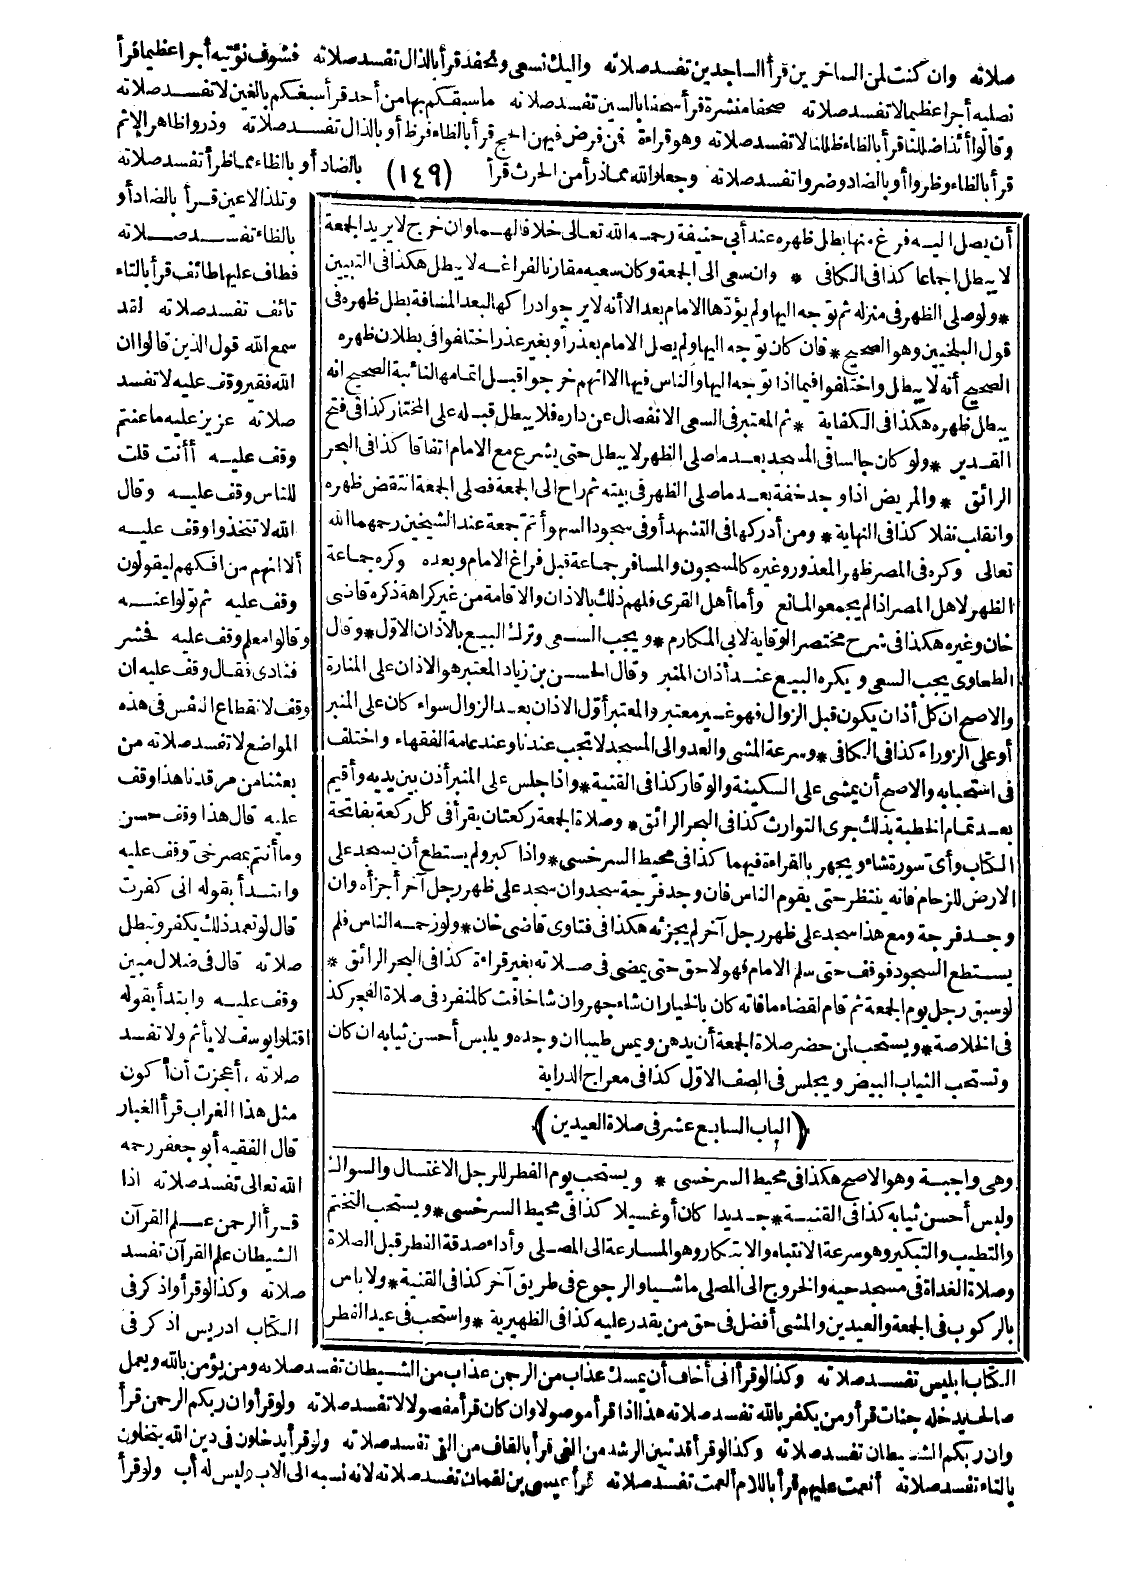 صلاته وان كنت لمن الساخرين قرأ الساجدين تفسد صلاته واليك نسعى ونحفد قرأ بالذال تفسد صلاته فسوف نؤتيه أجرا عظيما قرأ
نصليه أجرا عظيما لا تفسد صلاته صحفا منشرة قرأ سحفا بالسين تفسد صلاته ما سبقكم بها من أحد قرأ سبغكم بالغين لا تفسد صلاته
وقالوا أئذا ضللنا قرأ بالظاء ظللنا لا تفسد صلاته وهو قراءة فمن فرض فيهن الحج قرأ بالظاء فرظ أو بالذال تفسد صلاته وذروا ظاهر الاثم
قرأ بالظاء وظروا أو بالضاد وضروا تفسد صلاته وجعلوا لله مما ذرأ من الحرث قرأ (١٤٩) بالضاد أو بالظاء مما ظرأ تفسد صلاته
وتلذ الاعين قرأ بالضاد أو
بالظاء تفسد صلاته
فطاف عليها طائف قرأ بالتاء
تائف تفسد صلاته لقد
سمع الله قول الذين قالوا ان
الله فقير وقف عليه لا تفسد
صلاته عزيز عليه ما عنتم
وقف عليه أأنت قلت
للناس وقف عليه وقال
الله لا تتخذوا وقف عليه
ألا انهم من افكهم ليقولون
وقف عليه ثم تولوا عنه
وقالوا معلم وقف عليه فحشر
فنادى فقال وقف عليه ان
وقف لانقطاع النفس فى هذه
المواضع لا تفسد صلاته من
بعثنا من مرقدنا هذا وقف
عليه قال هذا وقف حسن
وما أنتم بمصرخى وقف عليه
وابتدأ بقوله انى كفرت
قال لو تعمد ذلك يكفر وتبطل
صلاته قال فى ضلال مبين
وقف عليه وابتدأ بقوله
اقتلوا يوسف لا يأثم ولا تفسد
صلاته ، أعجزت أن أكون
مثل هذا الغراب قرأ الغبار
قال الفقيه أبو جعفر رحمه
الله تعالى تفسد صلاته اذا
قرأ الرحمن علم القرآن
الشيطان علم القرآن تفسد
صلاته وكذا لو قرأ واذكر فى
الكتاب ادريس اذكر فى
أن يصل اليه فرغ منها بطل ظهره عند أبى حنيفة رحمه الله تعالى خلافا لهما وان خرج لا يريد الجمعة
لا يبطل اجماعا كذا فى الكافى * وان سعى الى الجمعة وكان سعيه مقارنا لفراغه لا يبطل هكذا فى التبيين
* ولو صلى الظهر فى منزله ثم توجه اليها ولم يؤدها الامام بعد الا أنه لا يرجو ادراكها لبعد المسافة بطل ظهره فى
قول البلخيين وهو الصحيح * فان كان توجه اليها ولم يصل الامام بعذر أو بغير عذر اختلفوا فى بطلان ظهره
الصحيح أنه لا يبطل واختلفوا فيما اذا توجه اليها والناس فيها الا انهم خرجوا قبل اتمامها لنائبة الصحيح انه
يبطل ظهره هكذا فى الكفاية * ثم المعتبر فى السعى الانفصال عن داره فلا يبطل قبله على المختار كذا فى فتح
القدير * ولو كان جالسا فى المسجد بعد ما صلى الظهر لا يبطل حتى يشرع مع الامام اتفاقا كذا فى البحر
الرائق * والمريض اذا وجد خفة بعد ما صلى الظهر فى بيته ثم راح الى الجمعة فصلى الجمعة انتقض ظهره
وانقلب نفلا كذا فى النهاية * ومن أدركها فى التشهد أو فى سجود السهو أتم جمعة عند الشيخين رحمهما الله
تعالى وكره فى المصر ظهر المعذور وغيره كالمسجون والمسافر جماعة قبل فراغ الامام وبعده وكره جماعة
الظهر لاهل المصر اذا لم يجمعوا لمانع وأما أهل القرى فلهم ذلك بالاذان والاقامة من غير كراهة ذكره قاضى
خان وغيره هكذا فى شرح مختصر الوقاية لابى المكارم * ويجب السعى وترك البيع بالاذان الاول * وقال
الطحاوى يجب السعى ويكره البيع عند أذان المنبر وقال الحسن بن زياد المعتبر هو الاذان على المنارة
والاصح ان كل أذان يكون قبل الزوال فهو غير معتبر والمعتبر أول الاذان بعد الزوال سواء كان على المنبر
أو على الزوراء كذا فى الكافى * وسرعة المشى والعدو الى المسجد لا تجب عندنا وعند عامة الفقهاء واختلف
فى استحبابه والاصح أن يمشى على السكينة والوقار كذا فى القنية * واذا جلس على المنبر أذن بين يديه وأقيم
بعد تمام الخطبة بذلك جرى التوارث كذا فى البحر الرائق * وصلاة الجمعة ركعتان يقرأ فى كل ركعة بفاتحة
الكتاب وأى سورة شاء ويجهر بالقراءة فيهما كذا فى محيط السرخسى * واذا كبر ولم يستطع أن يسجد على
الارض للزحام فانه ينتظر حتى يقوم الناس فان وجد فرجة سجد وان سجد على ظهر رجل آخر أجزأه وان
وجد فرجة ومع هذا سجد على ظهر رجل آخر لم يجزئه هكذا فى فتاوى قاضى خان * ولو زحمه الناس فلم
يستطع السجود فوقف حتى سلم الامام فهو لاحق حتى يمضى فى صلاته بغير قراءة كذا فى البحر الرائق *
لو سبق رجل يوم الجمعة ثم قام لقضاء ما فاته كان بالخيار ان شاء جهر وان شاء خافت كالمنفرد فى صلاة الفجر كذا
فى الخلاصة * ويستحب لمن حضر صلاة الجمعة أن يدهن ويمس طيبا ان وجده ويلبس أحسن ثيابه ان كان
وتستحب الثياب البيض ويجلس فى الصف الاول كذا فى معراج الدراية
(الباب السابع عشر فى صلاة العيدين)
وهى واجبة وهو الاصح هكذا فى محيط السرخسى * ويستحب يوم الفطر للرجل الاغتسال والسواك
ولبس أحسن ثيابه كذا فى القنية * جديدا كان أو غسيلا كذا فى محيط السرخسى * ويستحب التختم
والتطيب والتبكير وهو سرعة الانتباه والابتكار وهو المسارعة الى المصلى وأداء صدقة الفطر قبل الصلاة
وصلاة الغداة فى مسجد حيه والخروج الى المصلى ماشيا والرجوع فى طريق آخر كذا فى القنية * ولا باس
بالركوب فى الجمعة والعيدين والمشى أفضل فى حق من يقدر عليه كذا فى الظهيرية * واستحب فى عيد الفطر
الكتاب ابليس تفسد صلاته وكذا لو قرأ انى أخاف أن يمسك عذاب من الرحمن عذاب من الشيطان تفسد صلاته ومن يؤمن بالله ويعمل
صالحا يدخله جنات قرأ ومن يكفر بالله تفسد صلاته هذا اذا قرأ موصولا وان كان قرأ مفصولا لا تفسد صلاته ولو قرأ وان ربكم الرحمن قرأ
وان ربكم الشيطان تفسد صلاته وكذا لو قرأ قد تبين الرشد من الغى قرأ بالقاف من القى تفسد صلاته ولو قرأ يدخلون فى دين الله يتخلون
بالتاء تفسد صلاته أنعمت عليهم قرأ باللام ألعمت تفسد صلاته قرأ عيسى بن لقمان تفسد صلاته لانه نسبه الى الاب وليس له أب ولو قرأ